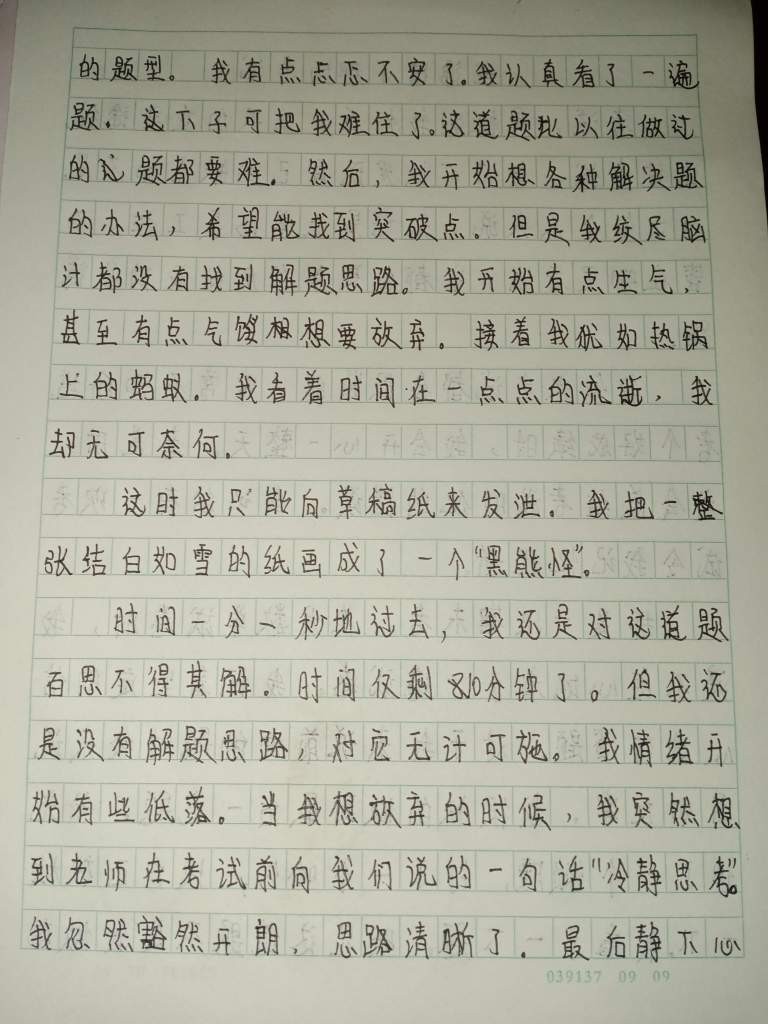 的题型。我有点忐忑不安了.我认真看了一遍
题.这下子可把我难住了.这道题比以往做过
的题都要难.然后,我开始想各种解决题
的办法,希望能找到突破点.但是我绞尽脑
计都没有找到解题思路。我开始有点生气,
甚至有点气馁想想要放弃.接着我犹如热锅
上的蚂蚁.我看着时间在一点点的流逝,我
却无可奈何.
这时我只能向草稿纸来发泄.我把一整
张结白如雪的纸画成了一个“黑熊怪”。
时间一分一秒地过去,我还是对这道题
百思不得其解.时间仅剩10分钟了。但我还
是没有解题思路,对它无计可施。我情绪开
始有些低落。当我想放弃的时候,我突然想
到老师在考试前向我们说的一句话“冷静思考”。
我忽然豁然开朗,思路清晰了.最后静下心
039137 09 09